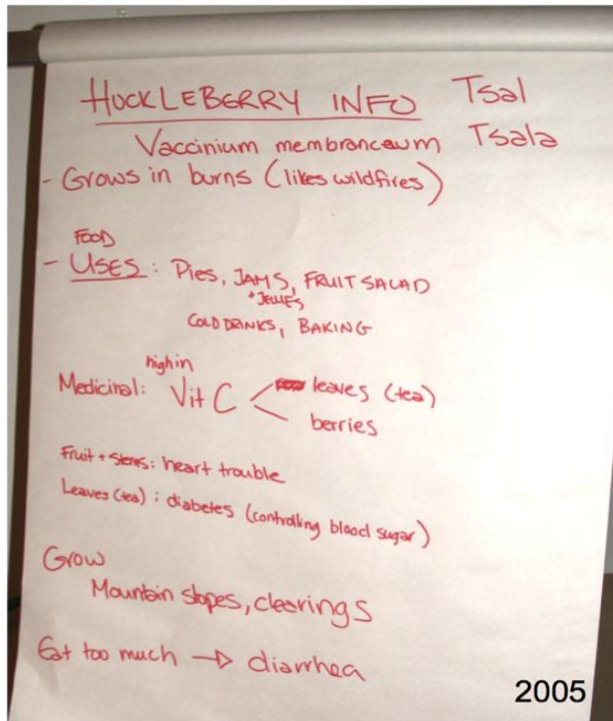 HUCKLEBERRY INFO Tsal
Vaccinium membranceum Tsala
- Grows in burns (likes wildfires)
FOOD
- USES: Pies, JAMS, FRUIT SALAD
+ JELLIES
COLD DRINKS, BAKING
high in
Medicinal: Vit C < leaves (tea)
berries
Fruit + stems: heart trouble
Leaves (tea): diabetes (controlling blood sugar)
Grow
Mountain slopes, clearings
Eat too much → diarrhea
2005